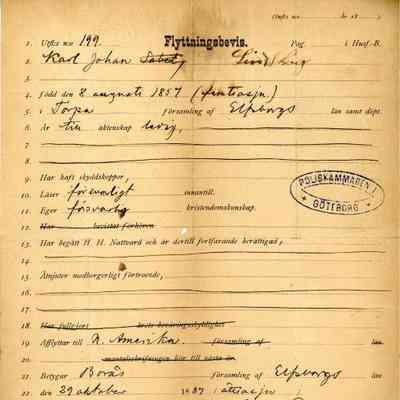 (Utfl:s n:o              år 18    .)
1. Utfl:s n:o 199.  Flyttningsbevis.  Pag.  i Husf.-B.
2. Karl Johan
3.
4. Född den 8 augusti 1857
5. i Torpa församling af Elfsborgs län samt dept.
6. Är till äktenskap ledig,
7.
8.
9. Har haft skyddskoppor,
10. Läser försvarligt innantill.
11. Eger försvarlig kristendomskunskap.
12. Har bevistat förhören
13. Har begått H. H. Nattvard och är dertill fortfarande berättigad,
14.
15. Åtnjuter medborgerligt förtroende,
16.
17.
18. Har fullgjort årets beväringsskyldighet
19. Afflyttar till N. Amerika. församling af län
20.
21. Betygar Borås församling af Elfsborgs län
22. den 29 oktober 1887
POLISKAMMAREN I
GÖTEBORG